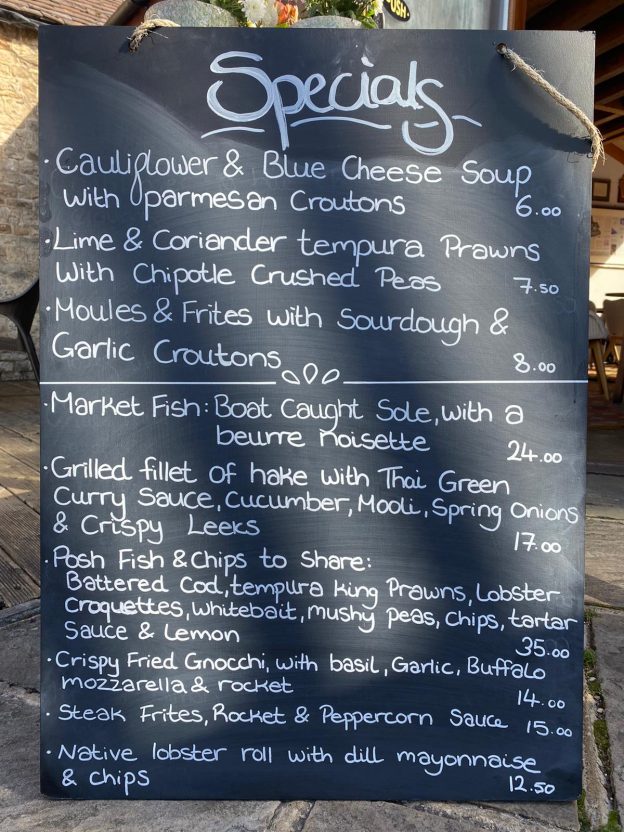 PUSH
Specials
· Cauliflower & Blue Cheese Soup
with parmesan Croutons 6.00
· Lime & Coriander tempura Prawns
With Chipotle Crushed Peas 7.50
· Moules & Frites with Sourdough &
Garlic Croutons 8.00
· Market Fish: Boat Caught Sole, with a
beurre noisette 24.00
· Grilled fillet of hake with Thai Green
Curry Sauce, Cucumber, Mooli, Spring Onions
& Crispy Leeks 17.00
· Posh Fish & Chips to Share:
Battered Cod, tempura king Prawns, Lobster
Croquettes, whitebait, mushy peas, chips, tartar
Sauce & Lemon 35.00
· Crispy Fried Gnocchi, with basil, Garlic, Buffalo
mozzarella & rocket 14.00
· Steak Frites, Rocket & Peppercorn Sauce 15.00
· Native lobster roll with dill mayonnaise
& chips 12.50